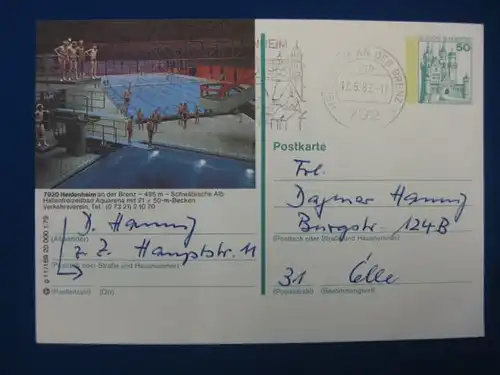 DEUTSCHE BUNDESPOST
50
AN DER BRENZ
Postkarte
7920 Heidenheim an der Brenz – 495 m – Schwäbische Alb
Hallenfreizeitbad Aquarena mit 21 x 50-m-Becken
Verkehrsverein, Tel. (0 73 21) 2 10 70
D. Hannig
(Absender)
z. Z. Hauptstr. 11
(Postfach oder Straße und Hausnummer)
(Postleitzahl) (Ort)
g 11/168 20 000 1.79
Frl.
Dagmar Hannig
Burgstr. 124B
(Postfach oder Straße und Hausnummer)
31 Celle
(Postleitzahl) (Bestimmungsort)